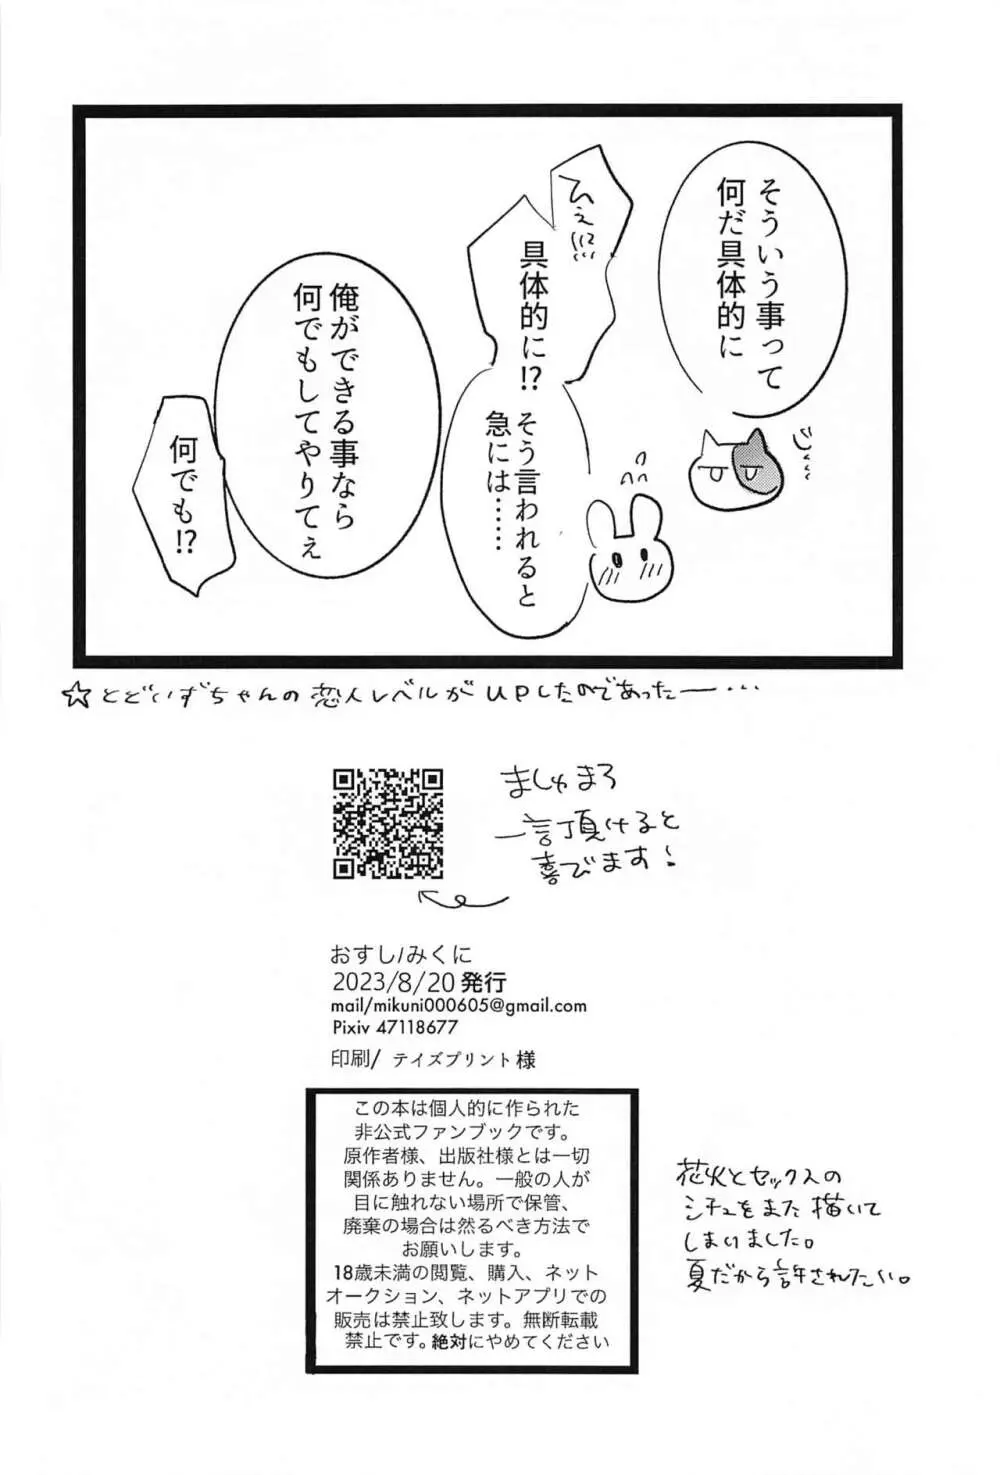 そういう事って
何だ具体的に
ジッ…
ひぇ!!!
具体的に!?
そう言われると
急には……
俺ができる事なら
何でもしてやりてぇ
何でも!?
☆とどいずちゃんの恋人レベルがUPしたのであったー・・・
ましゅまろ
一言頂けると
喜びます!
おすし/みくに
2023/8/20 発行
mail/mikuni000605@gmail.com
Pixiv 47118677
印刷/ テイズプリント様
この本は個人的に作られた
非公式ファンブックです。
原作者様、出版社様とは一切
関係ありません。一般の人が
目に触れない場所で保管、
廃棄の場合は然るべき方法で
お願いします。
18歳未満の閲覧、購入、ネット
オークション、ネットアプリでの
販売は禁止致します。無断転載
禁止です。絶対にやめてください
花火とセックスの
シチュをまた描いて
しまいました。
夏だから許されたい。